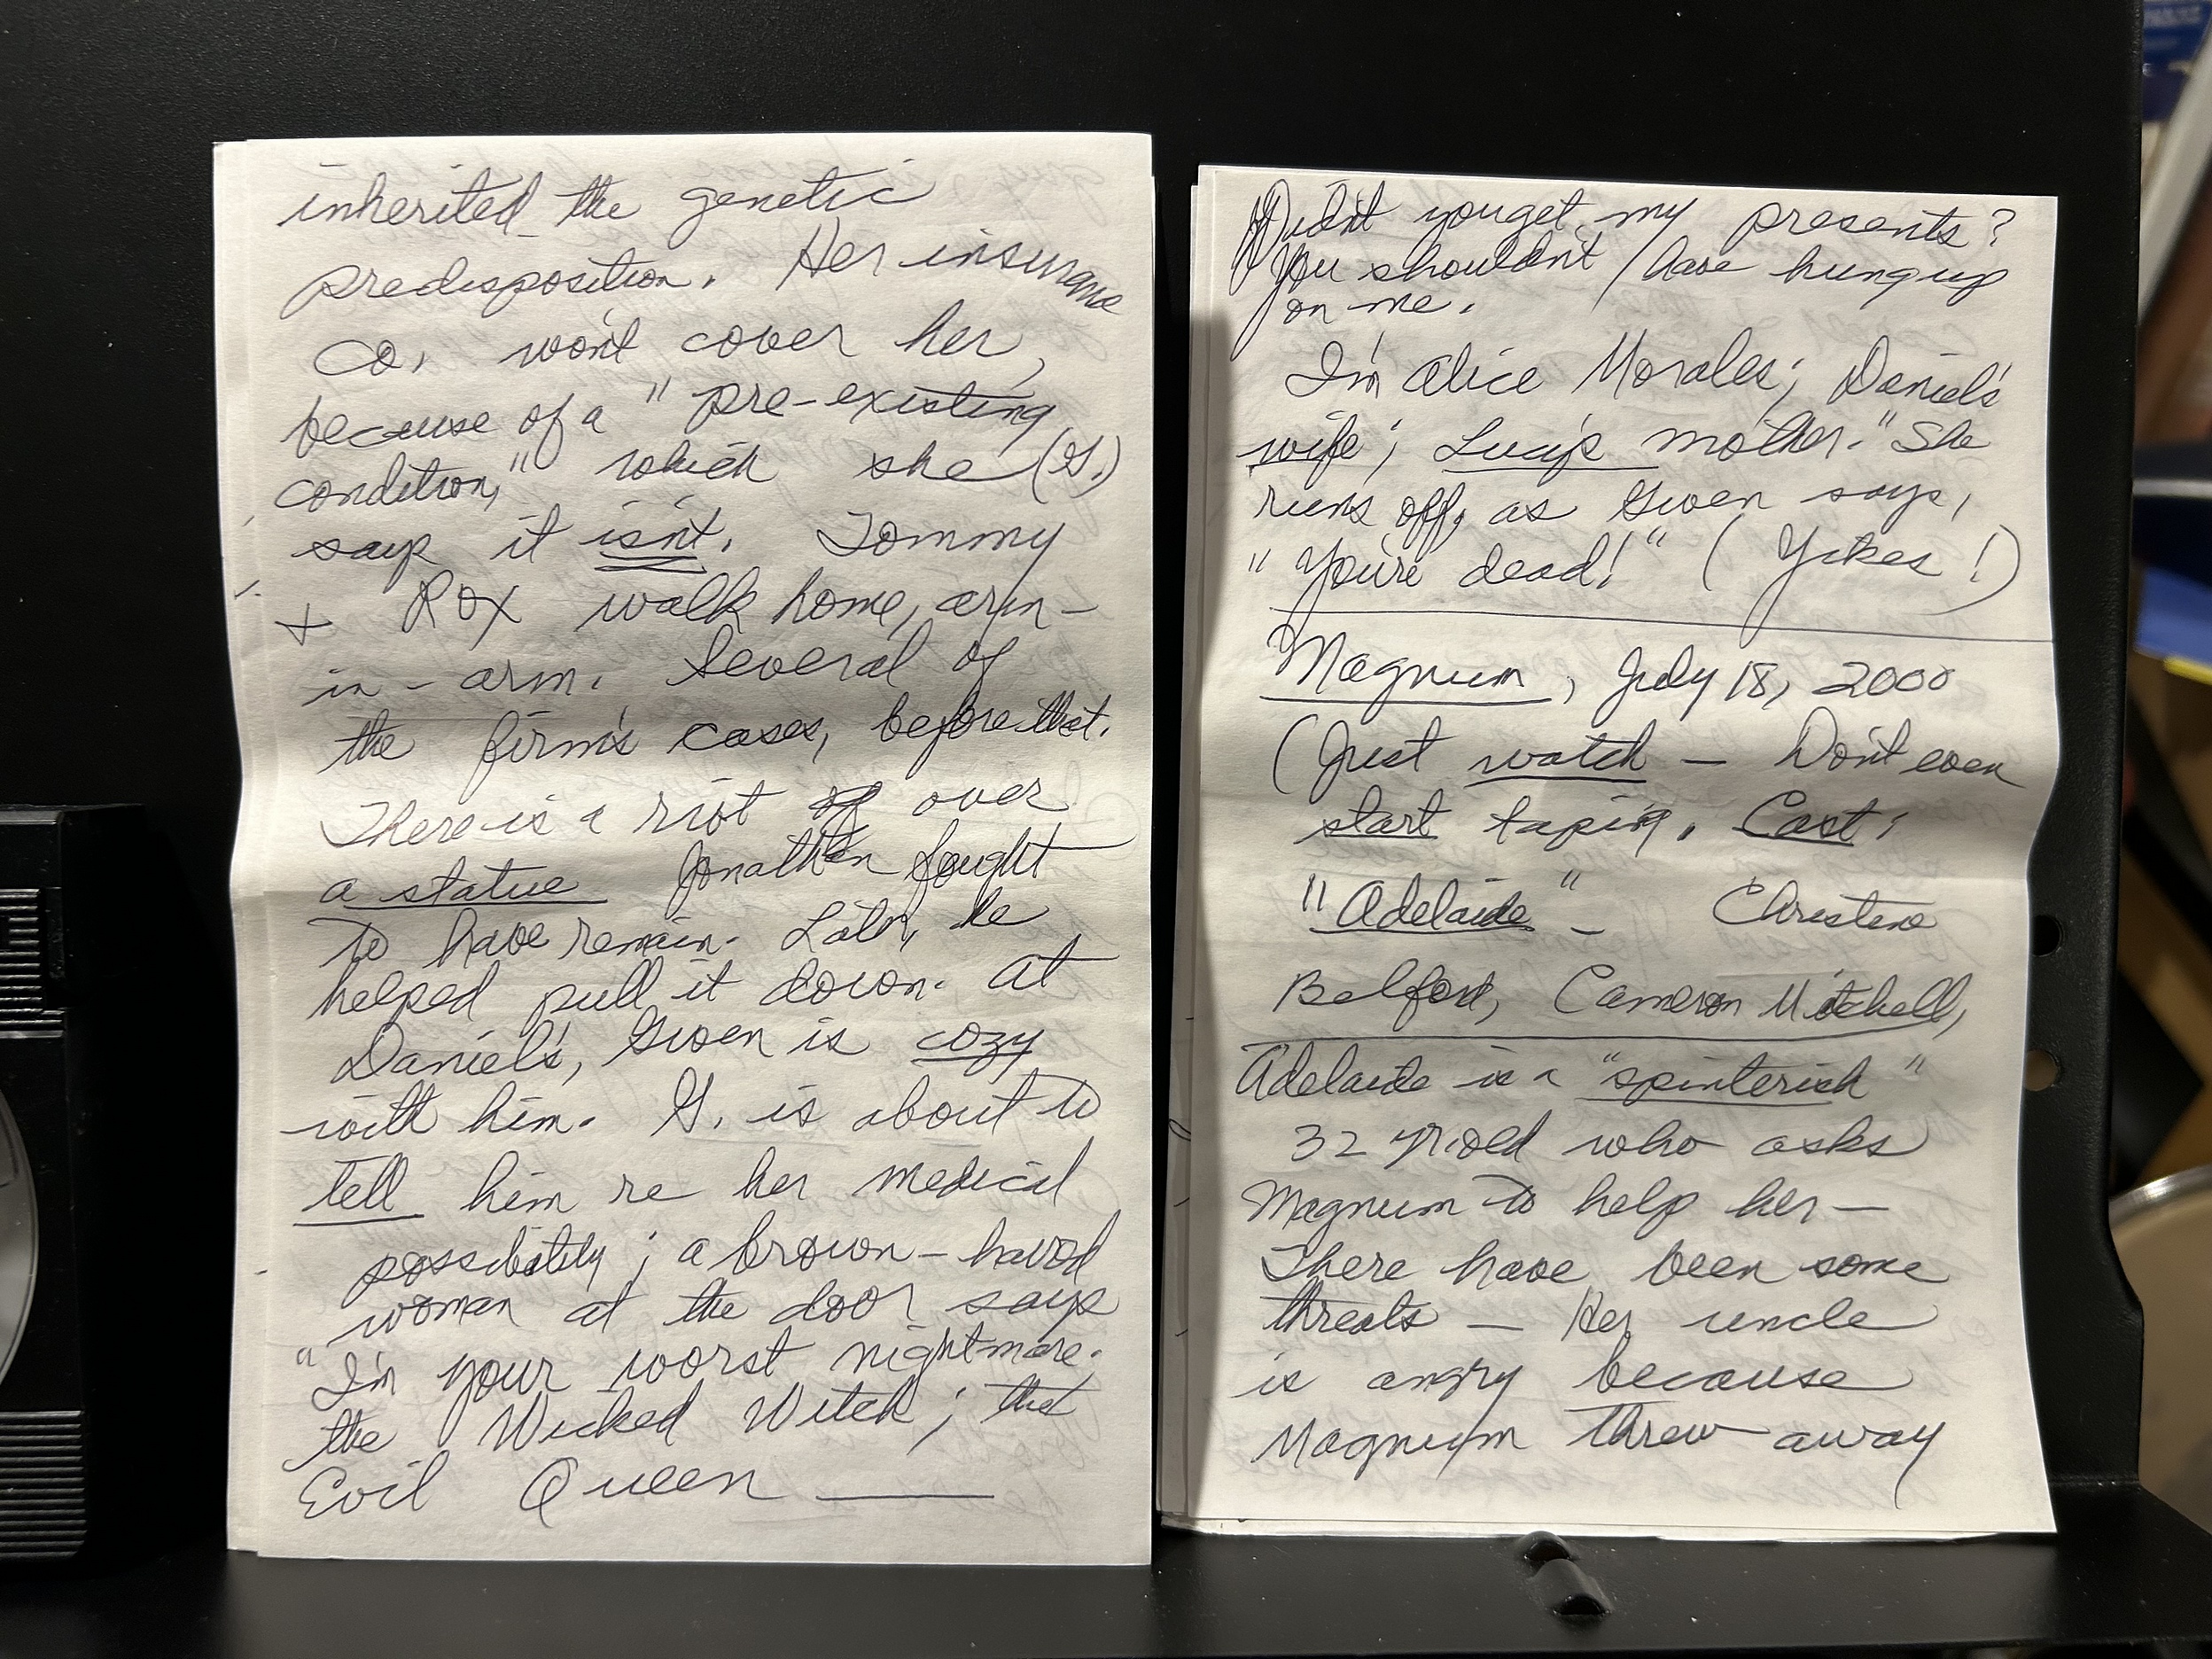 inherited the genetic
predisposition. Her insurance
co, won't cover her,
because of a "pre-existing
condition," which she (G.)
says it isn't. Tommy
+ Rox walk home, arm-
in-arm. Several of
the firm's cases, before that.
There is a riot over
a statue Jonathan fought
to have remain. Later, he
helped pull it down. At
Daniel's, Gwen is cozy
with him. G. is about to
tell him re her medical
possibility; a brown-haired
woman at the door says
"I'm your worst nightmare.
the Wicked Witch; the
Evil Queen ____
Didn't you get my presents?
You shouldn't have hung up
on me.
I'm Alice Morales; Daniel's
wife; Lucy's mother." She
runs off, as Gwen says,
"You're dead!" (Yikes!)
Magnum, July 18, 2000
(Just watch — Don't even
start taping. Cast:
"Adelaide" - Christine
Belford, Cameron Mitchell,
Adelaide is a "spinterish"
32 yr. old who asks
Magnum to help her —
There have been some
threats — Her uncle
is angry because
Magnum threw away